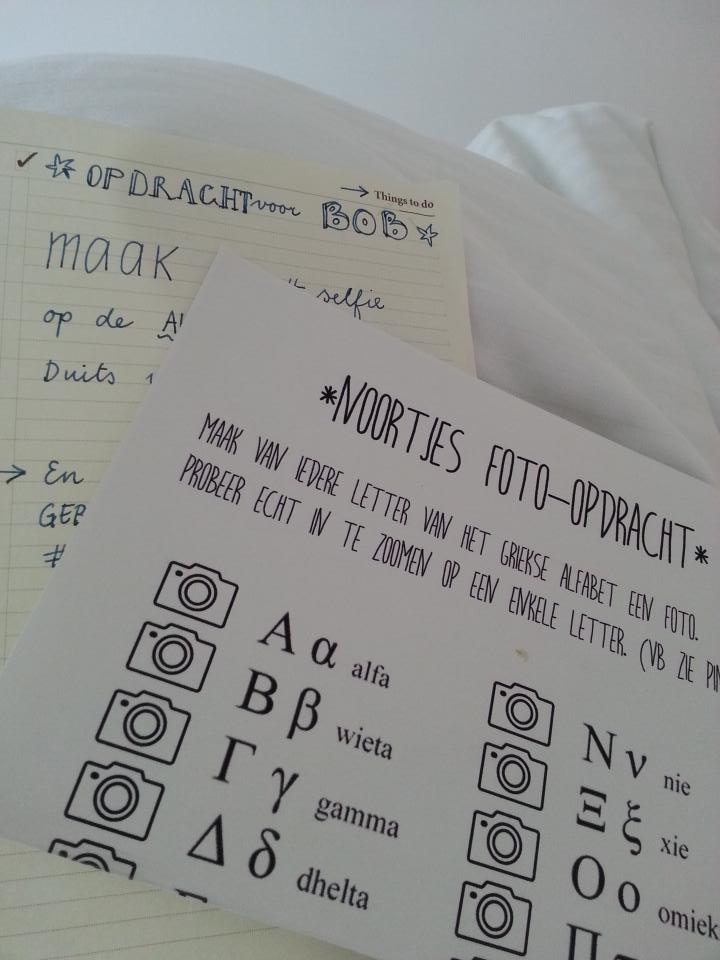 → Things to do
✓ ☆ OPDRACHT voor BOB ☆
maak
selfie
op de
Duits
→ En
#
*NOORTJES FOTO-OPDRACHT*
MAAK VAN IEDERE LETTER VAN HET GRIEKSE ALFABET EEN FOTO.
PROBEER ECHT IN TE ZOOMEN OP EEN ENKELE LETTER. (VB ZIE
Α α alfa
Β β wieta
Γ γ gamma
Δ δ dhelta
Ν ν nie
Ξ ξ xie
Ο ο omiek